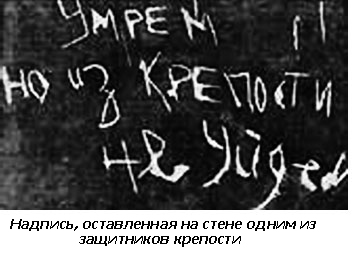 УМРЕМ
НО ИЗ КРЕПОСТИ
не Уйдем
Надпись, оставленная на стене одним из
защитников крепости